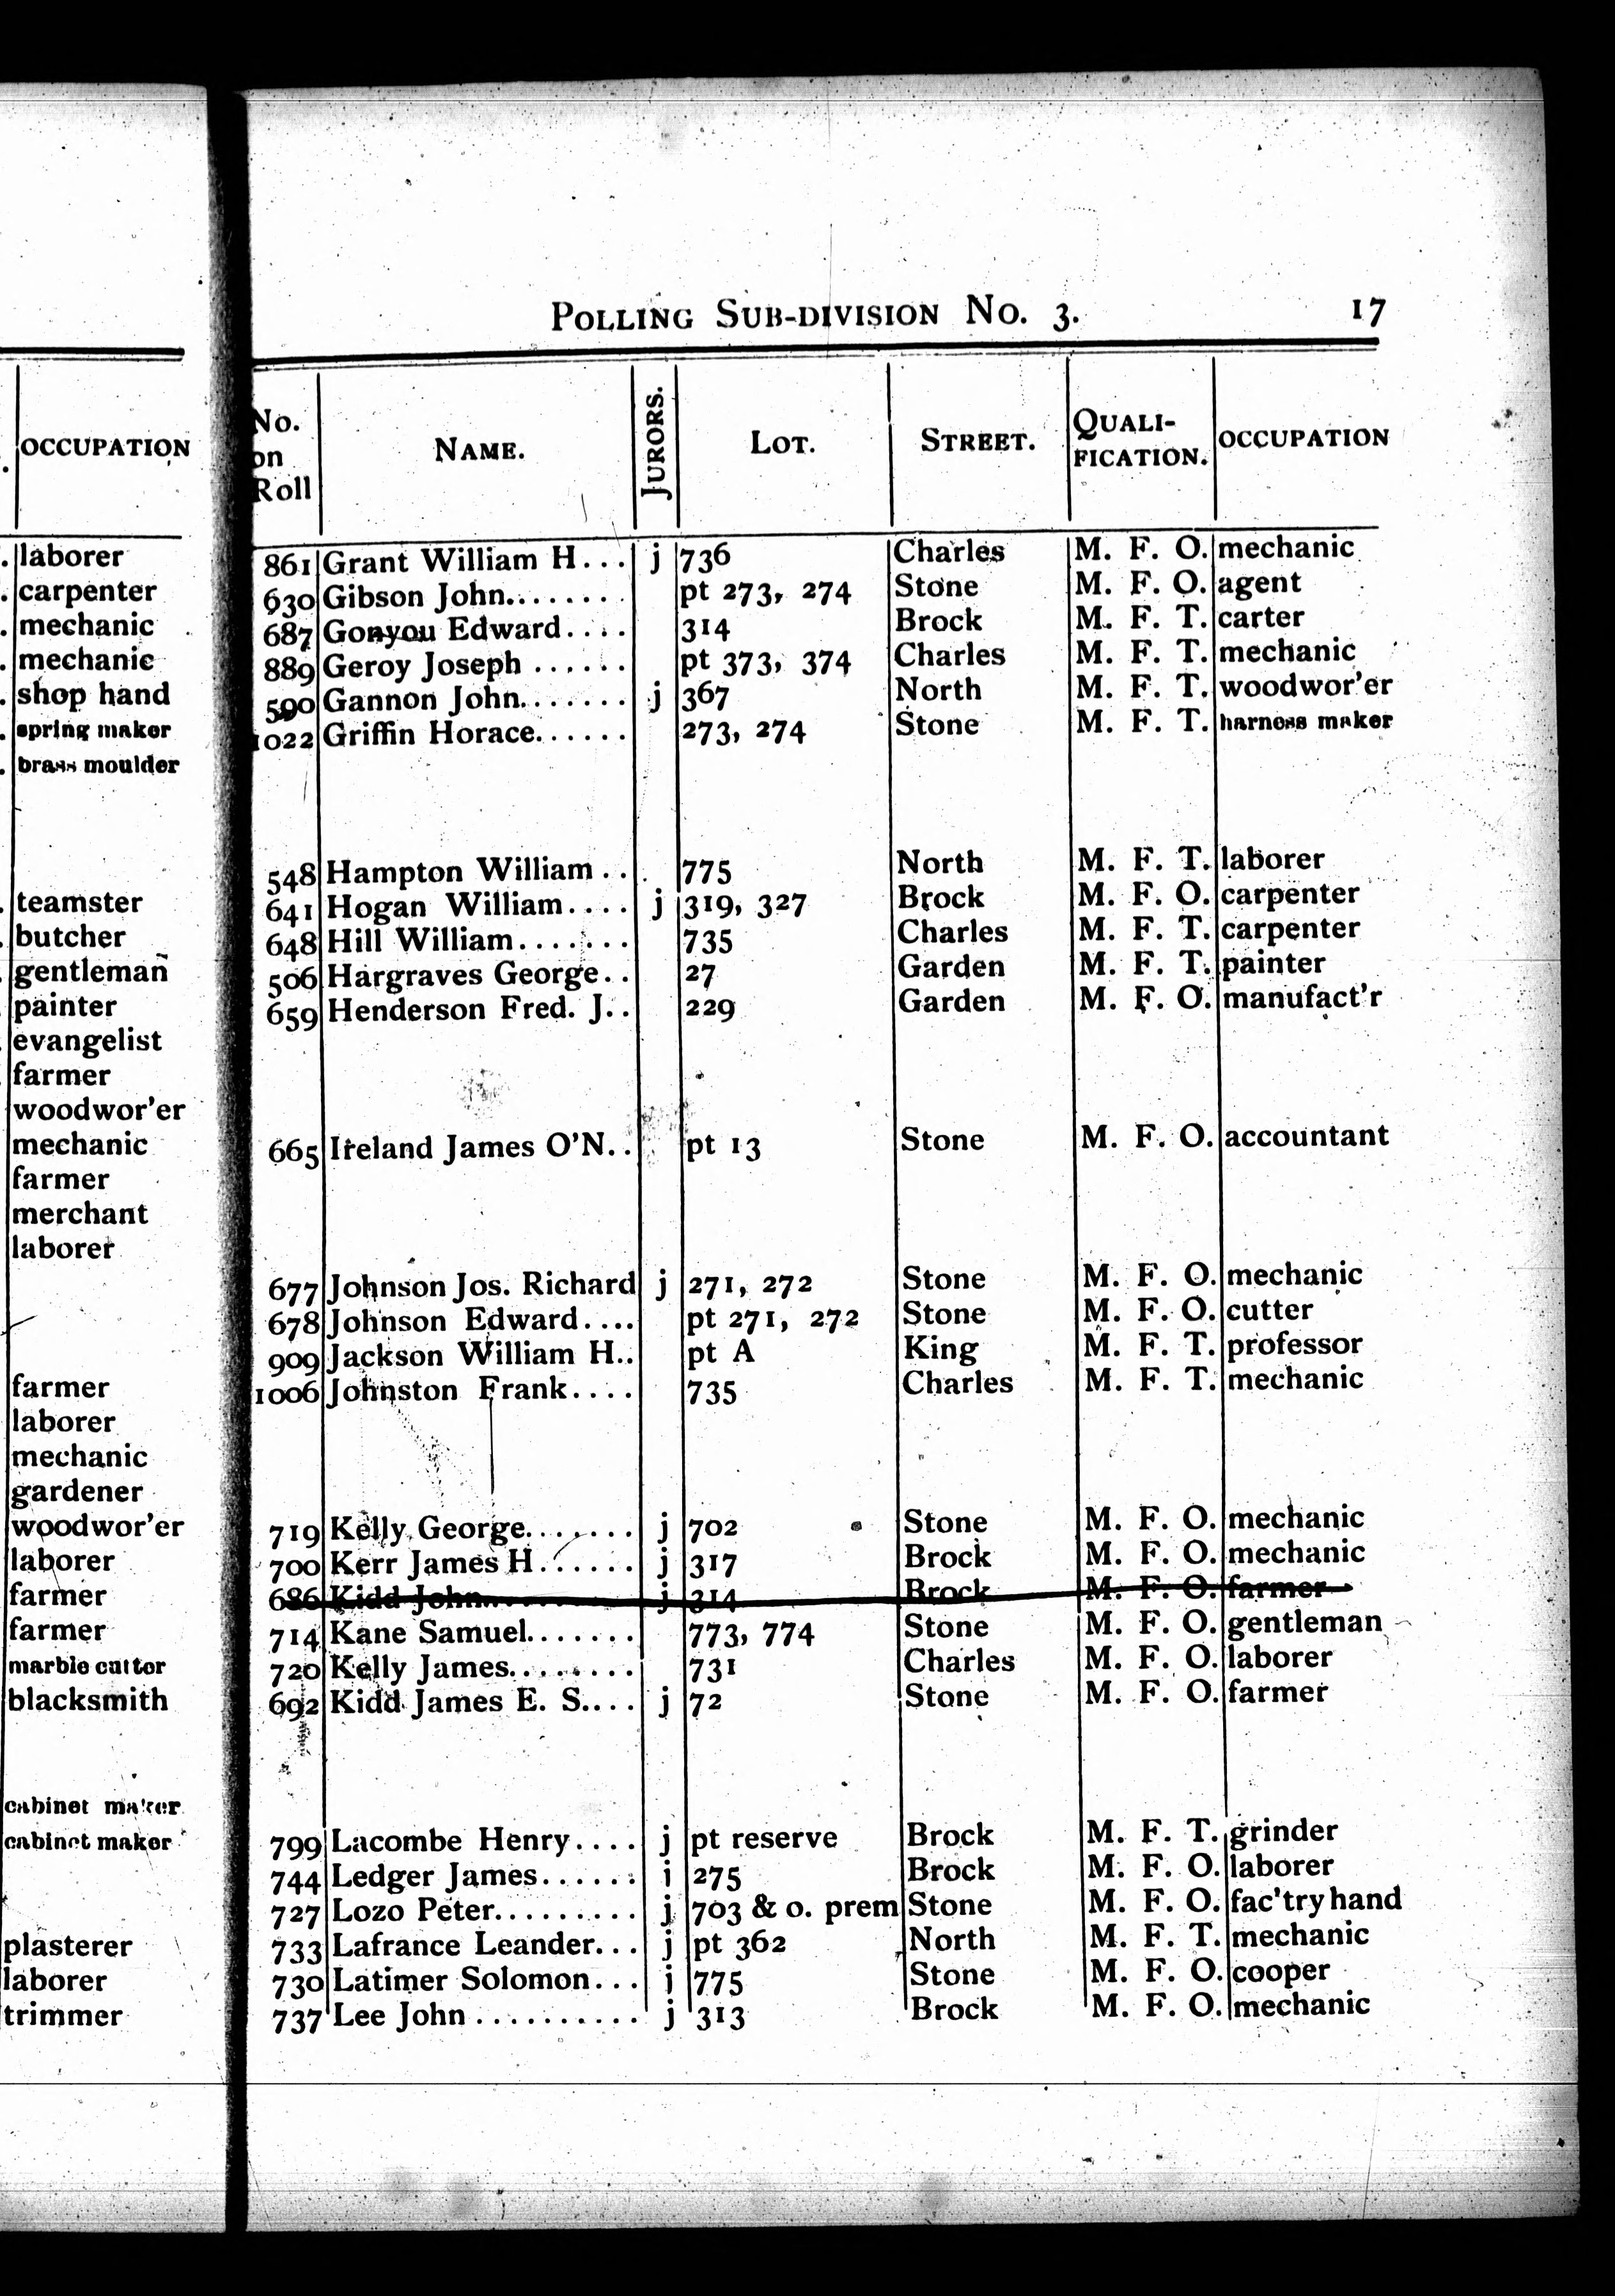 OCCUPATION
laborer
carpenter
mechanic
mechanic
shop hand
spring maker
brass moulder
teamster
butcher
gentleman
painter
evangelist
farmer
woodwor'er
mechanic
farmer
merchant
laborer
farmer
laborer
mechanic
gardener
woodwor'er
laborer
farmer
farmer
marble cutter
blacksmith
cabinet maker
cabinet maker
plasterer
laborer
trimmer
POLLING SUB-DIVISION No. 3. 17
No. on Roll NAME. JURORS. LOT. STREET. QUALI-FICATION. OCCUPATION
861 Grant William H... j 736 Charles M. F. O. mechanic
630 Gibson John........ pt 273, 274 Stone M. F. O. agent
687 Gonyou Edward.... 314 Brock M. F. T. carter
889 Geroy Joseph ...... pt 373, 374 Charles M. F. T. mechanic
590 Gannon John....... j 367 North M. F. T. woodwor'er
1022 Griffin Horace...... 273, 274 Stone M. F. T. harness maker
548 Hampton William .. 775 North M. F. T. laborer
641 Hogan William.... j 319, 327 Brock M. F. O. carpenter
648 Hill William....... 735 Charles M. F. T. carpenter
506 Hargraves George.. 27 Garden M. F. T. painter
659 Henderson Fred. J.. 229 Garden M. F. O. manufact'r
665 Ireland James O'N.. pt 13 Stone M. F. O. accountant
677 Johnson Jos. Richard j 271, 272 Stone M. F. O. mechanic
678 Johnson Edward.... pt 271, 272 Stone M. F. O. cutter
909 Jackson William H.. pt A King M. F. T. professor
1006 Johnston Frank.... 735 Charles M. F. T. mechanic
719 Kelly George....... j 702 Stone M. F. O. mechanic
700 Kerr James H...... j 317 Brock M. F. O. mechanic
686 Kidd John......... j 314 Brock M. F. O. farmer
714 Kane Samuel....... 773, 774 Stone M. F. O. gentleman
720 Kelly James........ 731 Charles M. F. O. laborer
692 Kidd James E. S.... j 72 Stone M. F. O. farmer
799 Lacombe Henry.... j pt reserve Brock M. F. T. grinder
744 Ledger James...... j 275 Brock M. F. O. laborer
727 Lozo Peter......... j 703 & o. prem Stone M. F. O. fac'try hand
733 Lafrance Leander... j pt 362 North M. F. T. mechanic
730 Latimer Solomon... j 775 Stone M. F. O. cooper
737 Lee John .......... j 313 Brock M. F. O. mechanic